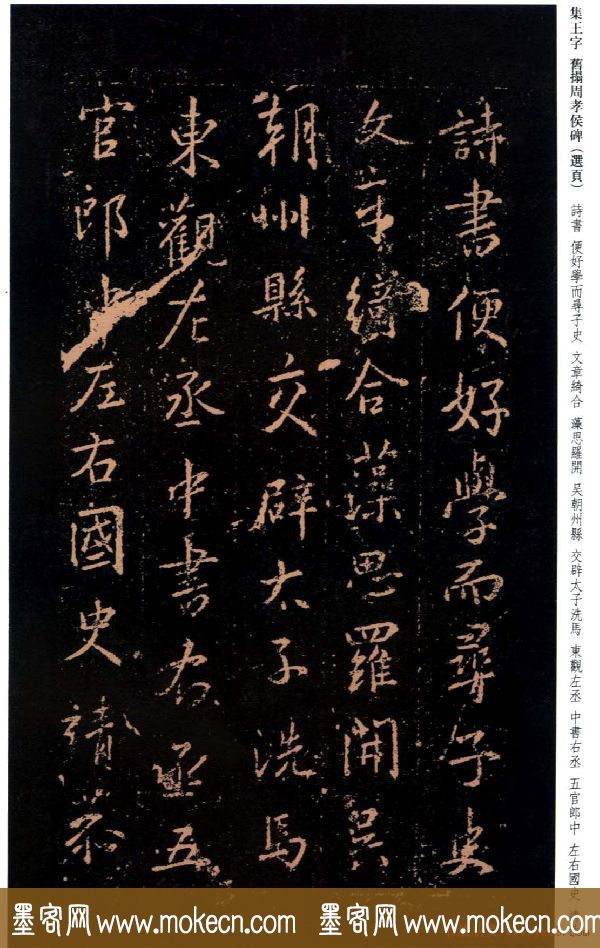 集王字 舊搨周孝侯碑（選頁） 詩書 便好學而尋子史 文章綺合 藻思羅開 吴朝州縣 交辟太子洗馬 東觀左丞 中書右丞 五官郎中 左右國史
詩書便好學而尋子史
文章綺合藻思羅開吳
朝州縣交辟太子洗馬
東觀左丞中書右丞五
官郎中左右國史靖恭
墨客网 www.mokecn.com 墨客网 www.mokecn.com